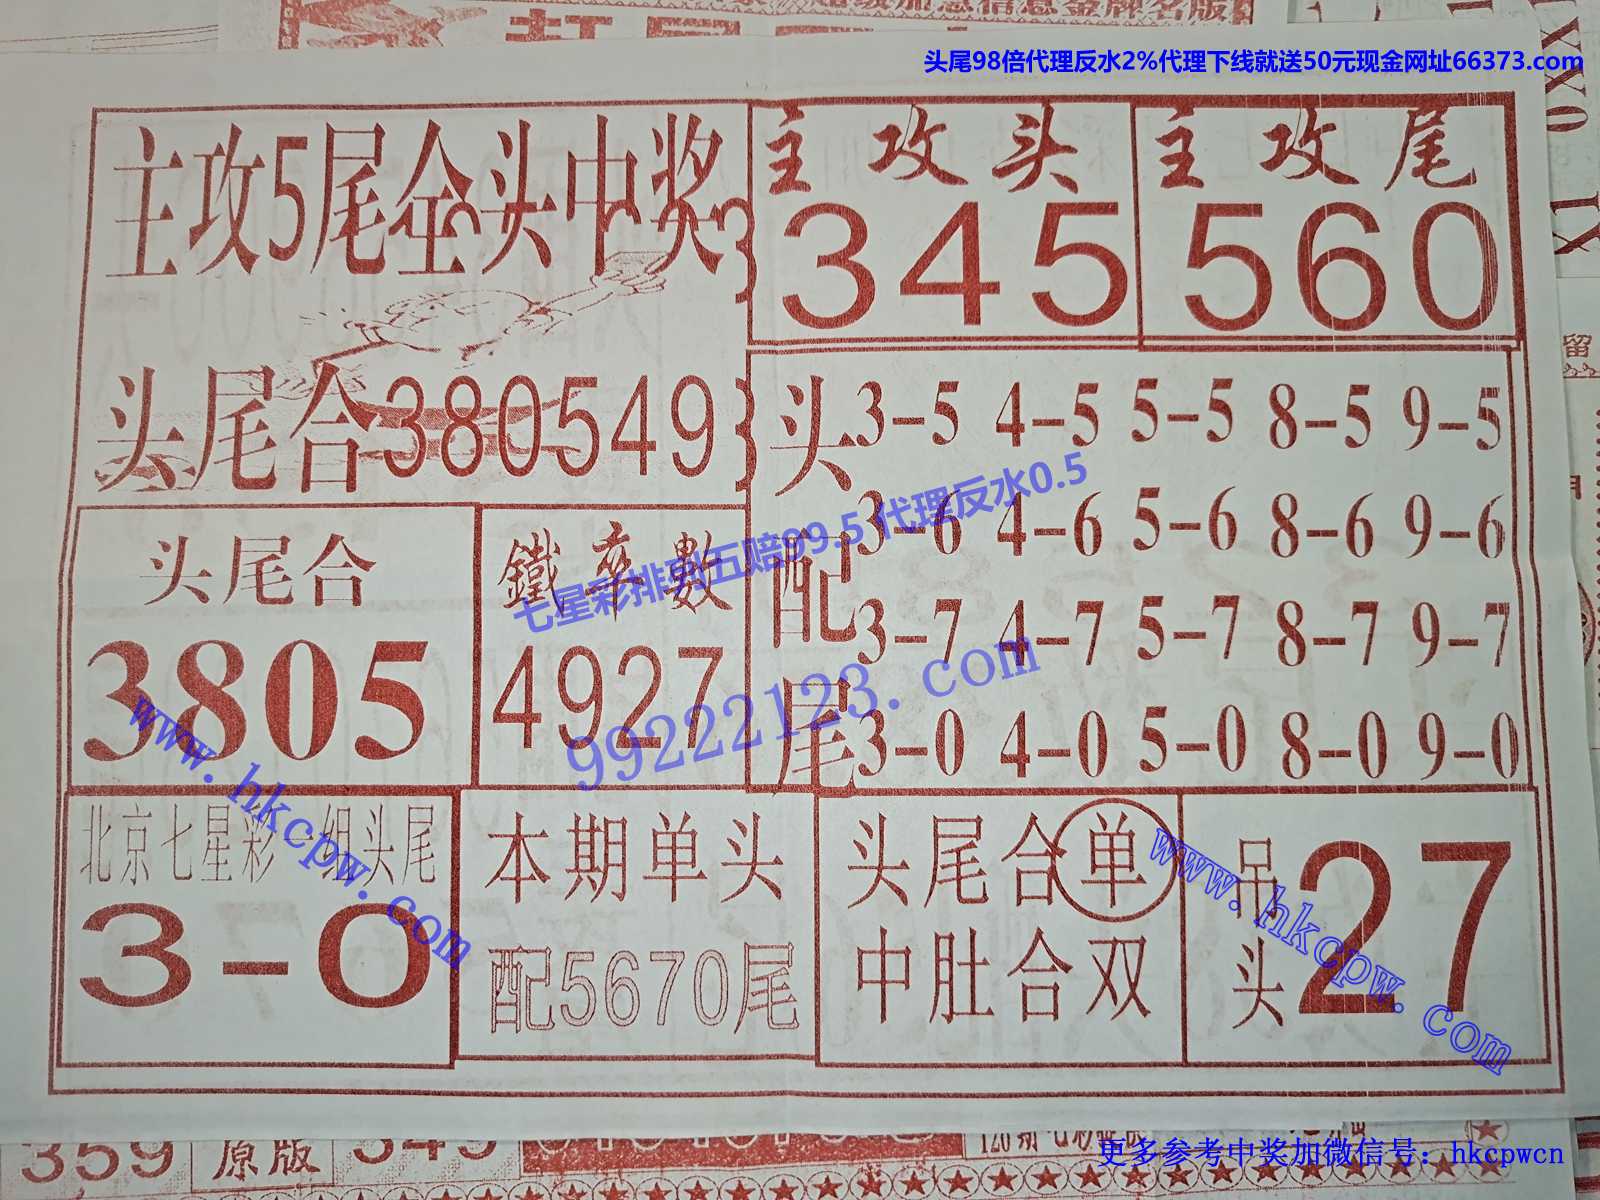 超级加急信息金牌名版
头尾98倍代理反水2%代理下线就送50元现金网址66373.com
主攻5尾全头中奖
主攻头
345
主攻尾
560
头尾合380549
头配尾
3-5 4-5 5-5 8-5 9-5
3-6 4-6 5-6 8-6 9-6
3-7 4-7 5-7 8-7 9-7
3-0 4-0 5-0 8-0 9-0
头尾合
3805
鐵率數
4927
七星彩排列五赔99.5 代理反水0.5
99222123.com
www.hkcpw.com
北京七星彩一组头尾
3-0
本期单头
配5670尾
头尾合单
中肚合双
吊头27
www.hkcpw.com
359 原版 349
更多参考中奖加微信号：hkcpwcn